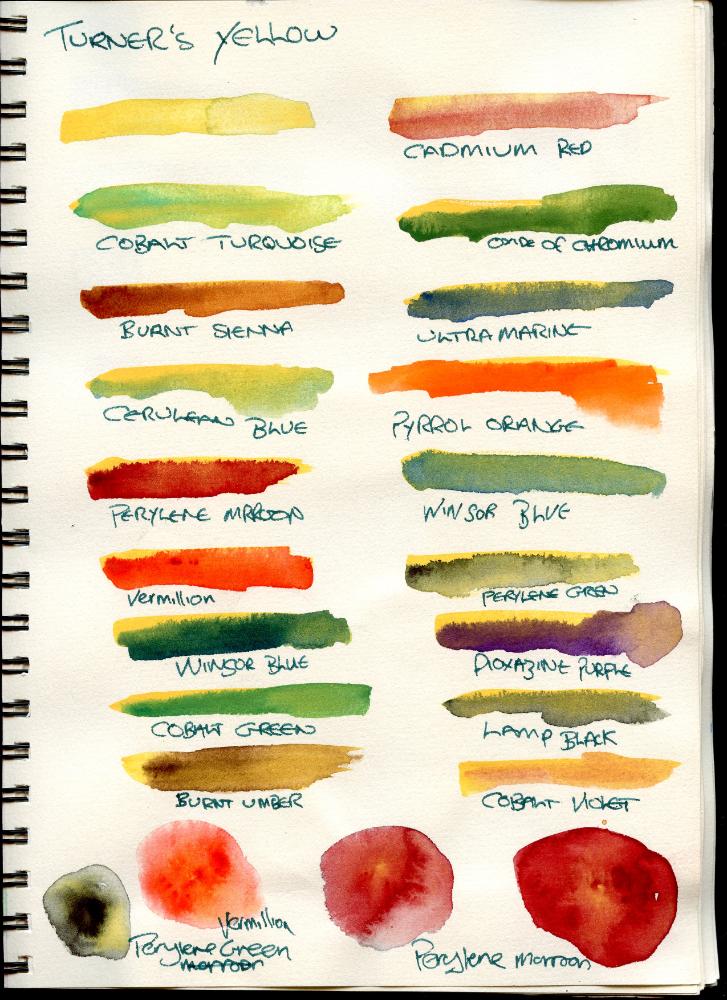 TURNER'S YELLOW
CADMIUM RED
COBALT TURQUOISE
OXIDE OF CHROMIUM
BURNT SIENNA
ULTRAMARINE
CERULEAN BLUE
PYRROL ORANGE
PERYLENE MAROON
WINSOR BLUE
Vermillion
PERYLENE GREN
WINSOR BLUE
DIOXAZINE PURPLE
COBALT GREEN
LAMP BLACK
BURNT UMBER
COBALT VIOLET
Vermillion
Perylene Green
marroon
Perylene marroon